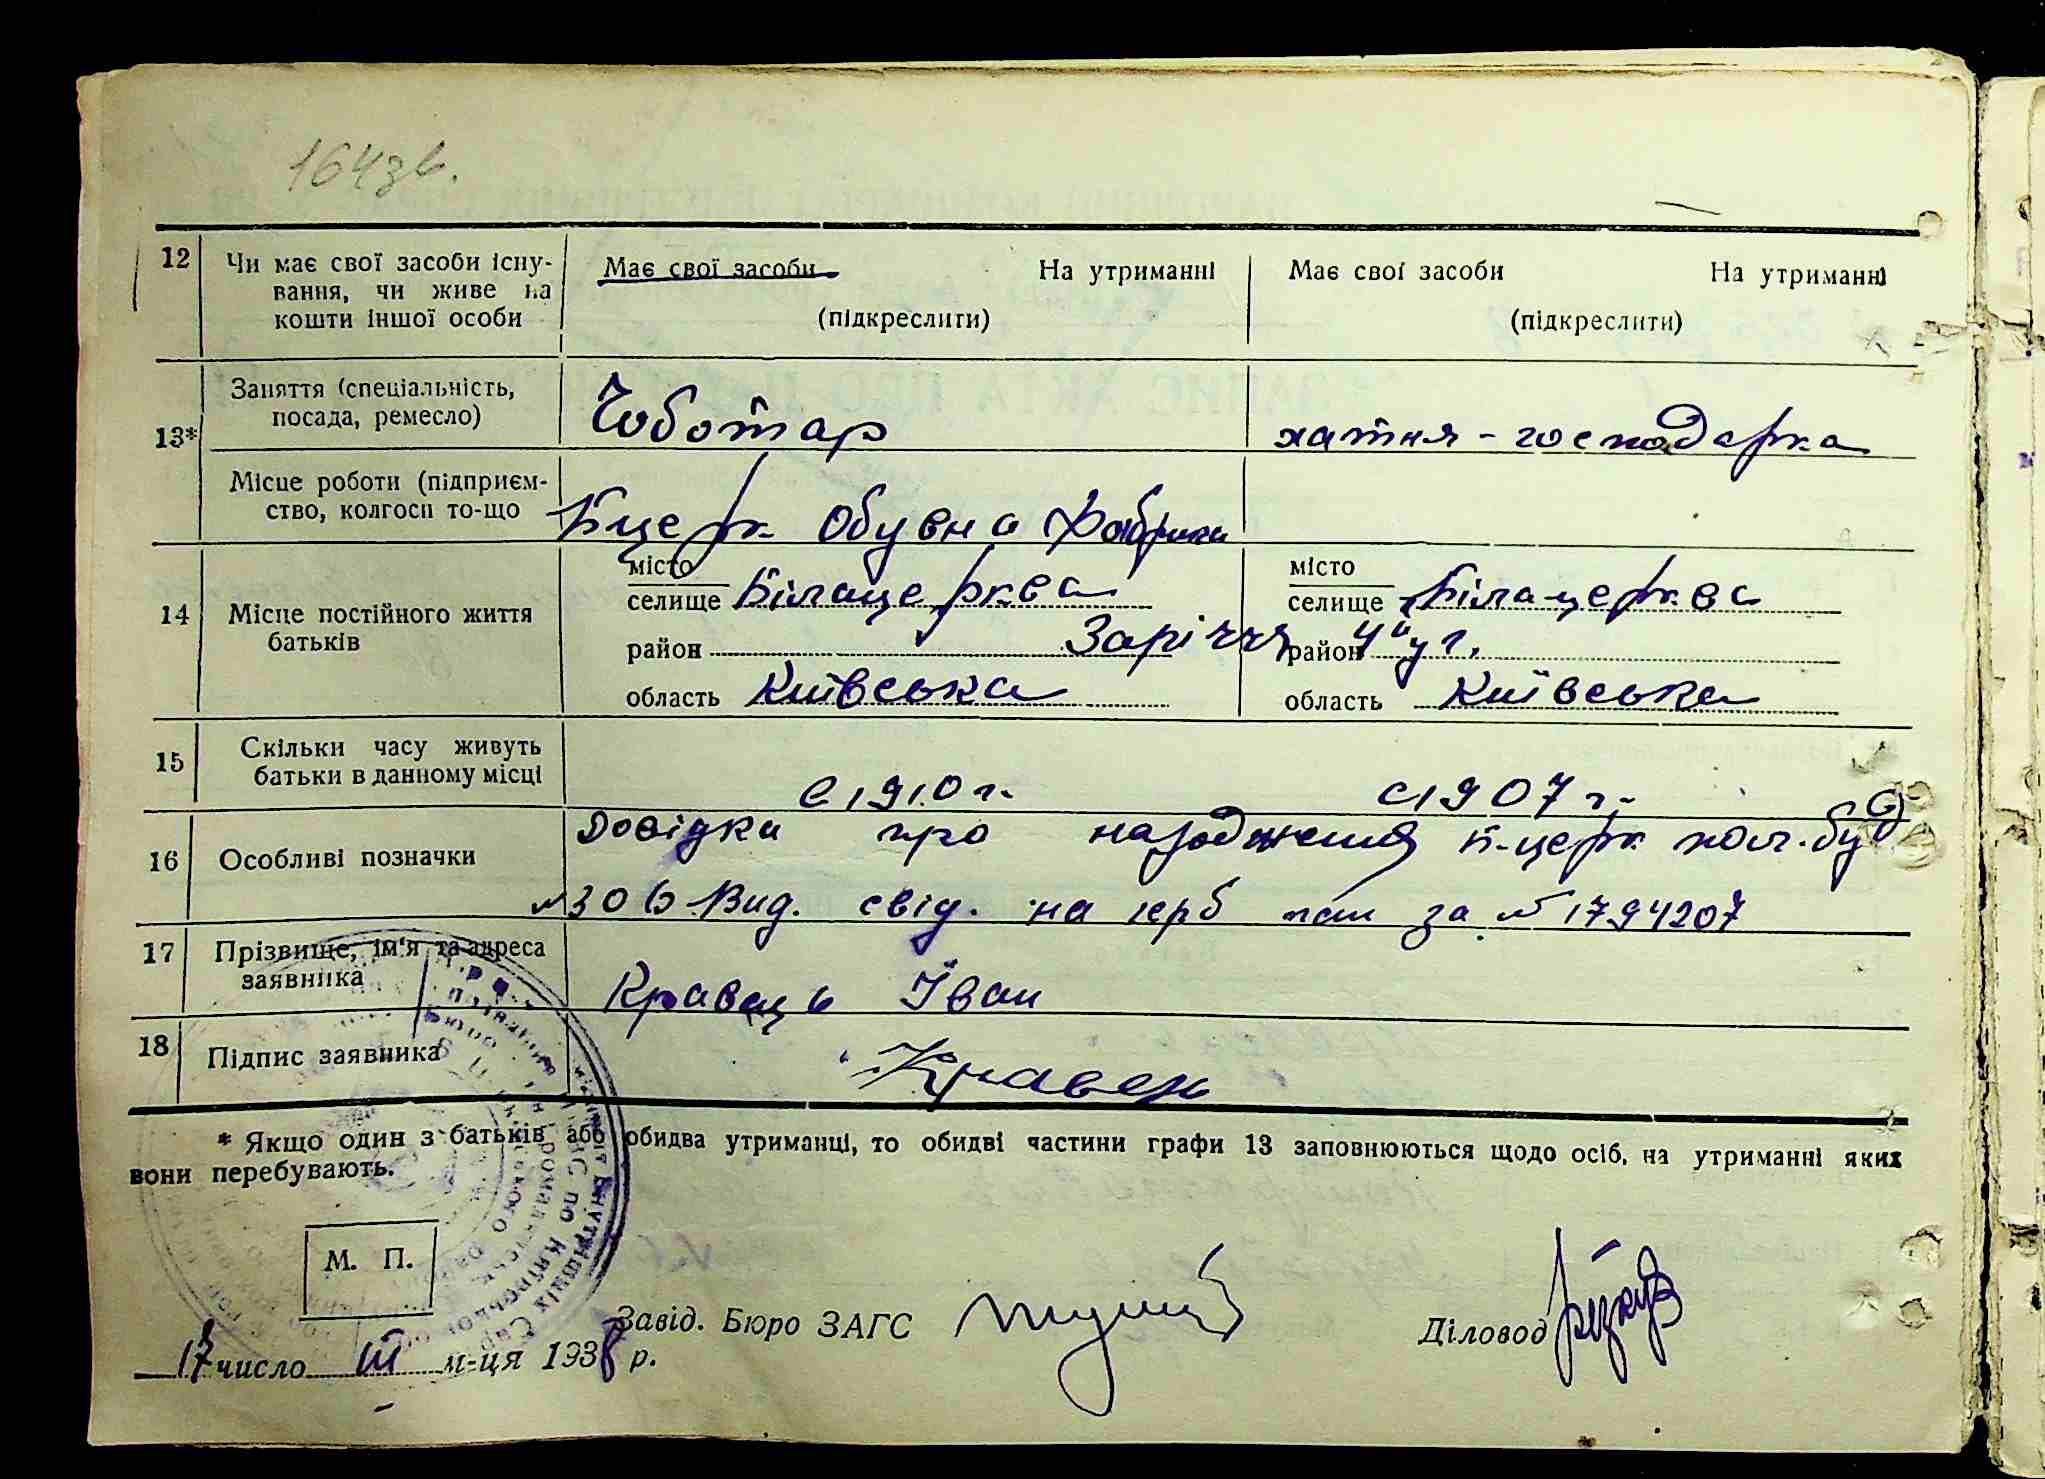 164зв.
12 Чи має свої засоби існу-
вання, чи живе на
кошти іншої особи
Має свої засоби На утриманні
(підкреслити)
Має свої засоби На утриманні
(підкреслити)
13* Заняття (спеціальність,
посада, ремесло)
Чоботар
хатня-господарка
Місце роботи (підприєм-
ство, колгосп то-що
Бцерк Обувна Фабрика
14 Місце постійного життя
батьків
місто
селище Білацерква
район Заріччя
область Київська
місто
селище Білацерква
район
область Київська
15 Скільки часу живуть
батьки в данному місці
С 1910 г. С 1907 г.
16 Особливі позначки
Довідка про народження Б-церк пол.буд
№306 Вид. свід. на герб пап за № 1794207
17 Прізвище, ім'я та адреса
заявника
Кравець Іван
18 Підпис заявника
Кравец
* Якщо один з батьків або обидва утриманці, то обидві частини графи 13 заповнюються щодо осіб, на утриманні яких
вони перебувають.
М. П.
Завід. Бюро ЗАГС
Діловод
17 число III м-ця 1938 р.